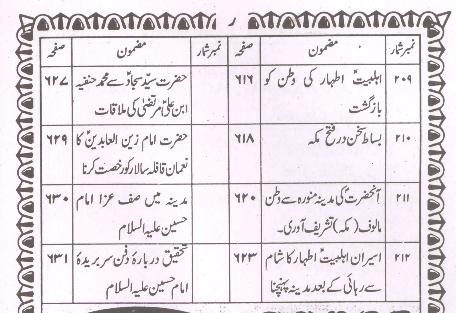 ر
نمبر شمار مضمون صفحہ نمبر شمار مضمون صفحہ
۲۰۹ اہلبیتؑ اطہار کی وطن کو ۶۱۶
بازگشت
۲۱۰ بساط سخن در فتح مکہ ۶۱۸
۲۱۱ آنحضرتؐ کی مدینہ منورہ سے وطن ۶۲۰
مالوف (مکہ) تشریف آوری۔
۲۱۲ اسیران اہلبیتؑ اطہار کا شام ۶۲۳
سے رہائی کے بعد مدینہ پہنچنا
حضرت سیّد سجادؑ سے محمد حنفیہ ۶۲۷
ابن علیؑ مرتضیٰ کی ملاقات
حضرت امام زین العابدینؑ کا ۶۲۹
نعمان قافلہ سالار کو رخصت کرنا
مدینہ میں صف عزا امام ۶۳۰
حسین علیہ السلام
تحقیق دربارۂ دفن سر بریدۂ ۶۳۱
امام حسین علیہ السلام